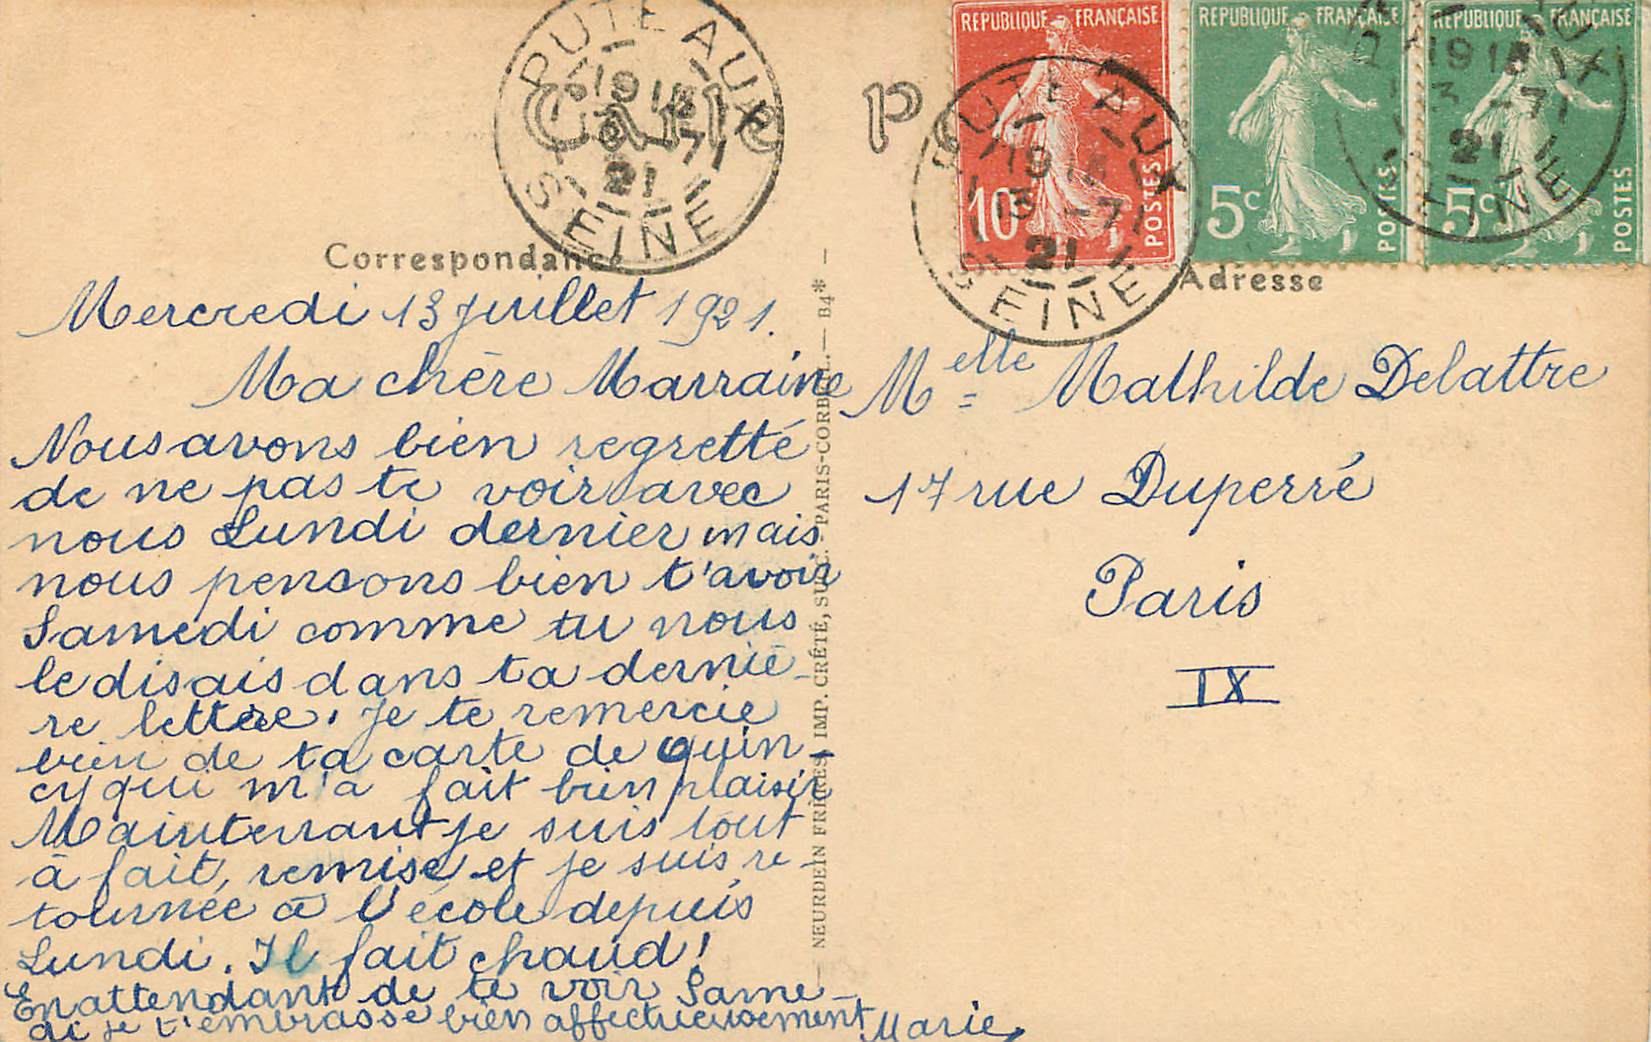 PUTEAUX
19 15
13 -7
21
SEINE
Carte
P
REPUBLIQUE FRANÇAISE
10c
POSTES
REPUBLIQUE FRANÇAISE
5c
POSTES
REPUBLIQUE FRANÇAISE
5c
POSTES
PUTEAUX
13 -7
21
SEINE
13 -7
21
Correspondance
Adresse
Mercredi 13 juillet 1921.
Ma chère Marraine
Nous avons bien regretté
de ne pas te voir avec
nous Lundi dernier mais
nous pensons bien t'avoir
Samedi comme tu nous
le disais dans ta derniè-
re lettre. Je te remercie
bien de ta carte de quin-
cy qui m'a fait bien plaisir
Maintenant je suis tout
à fait, remise et je suis re-
tournée à l'école depuis
Lundi. Il fait chaud!
En attendant de te voir Same-
di je t'embrasse bien affectueusement Marie
NEURDEIN FRÈRES, IMP. CRÉTÉ, SUCC. - PARIS-CORBEIL. — B4* —
Melle Mathilde Delattre
17 rue Duperré
Paris
IX